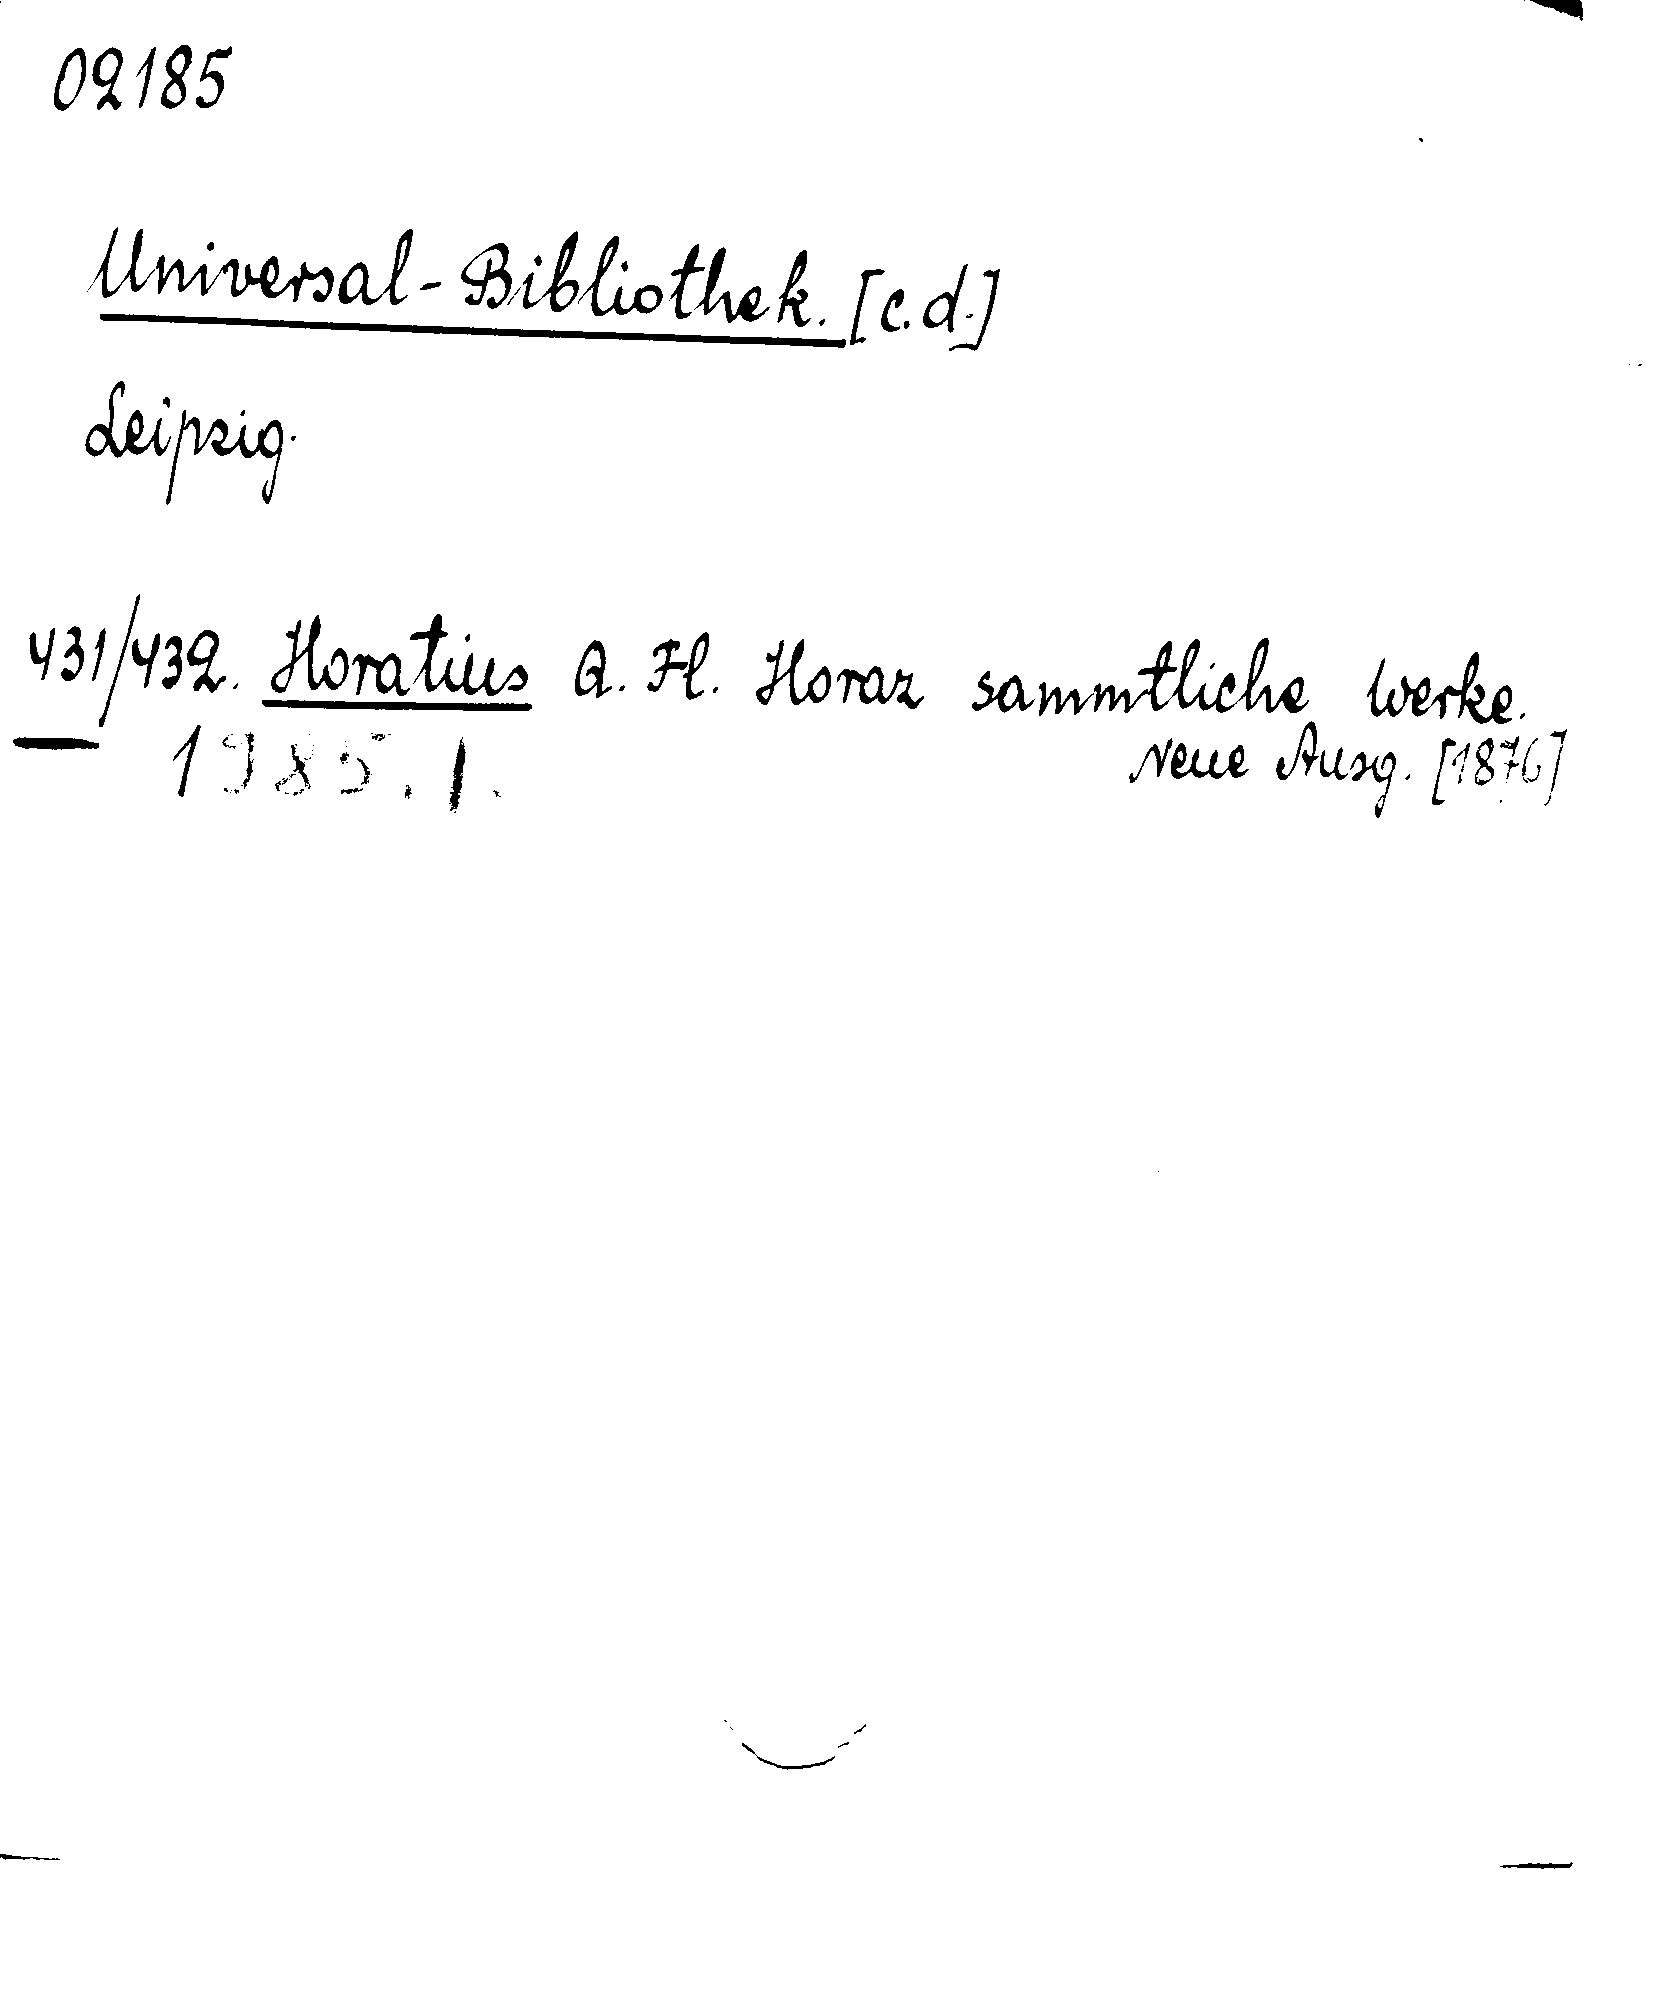 02185
Universal-Bibliothek. [c.d.]
Leipzig.
431/432. Horatius Q. Fl. Horaz sammtliche Werke.
Neue Ausg. [1876]
1985. 1.